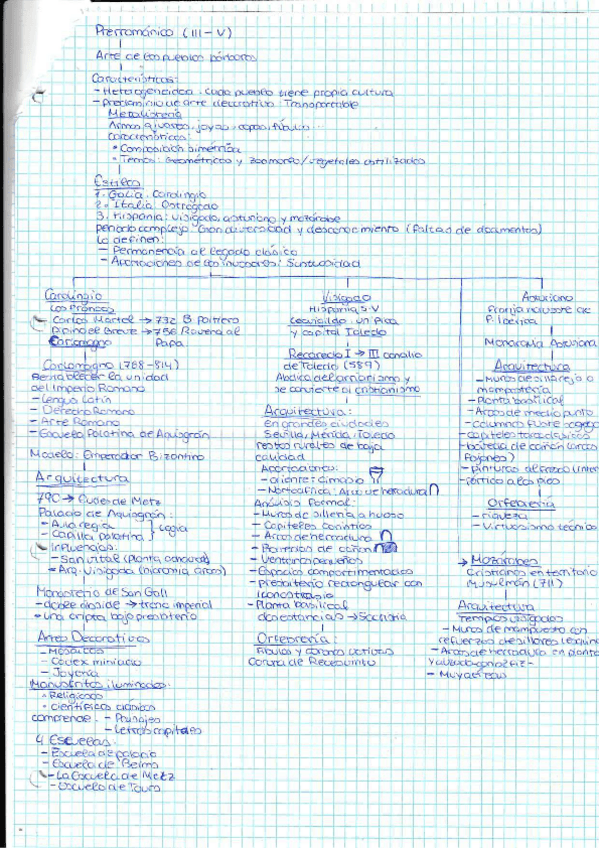 Prerrománico (III-V)
Arte de los pueblos bárbaros
Características:
- Heterogeneidad. Cada pueblo tiene propia cultura
- Predominio de arte decorativo. Transportable
Metalistería
Armas, ajuares, joyas, copas, fíbulas...
Características:
• Composición simétrica
• Temas: Geométricos y zoomorfos/vegetales estilizados
Estilos
1. Galia: Carolingio
2. Italia: Ostrogodo
3. Hispania: Visigodo, asturiano y mozárabe
Periodo complejo. Gran diversidad y desconocimiento (faltas de documentos)
Lo definen:
- Permanencia del legado clásico
- Aportaciones de los invasores: Suntuosidad
Carolingio
Los Francos
Carlos Martel → 732 B. Poitiers
Pipino el Breve → 756 Ravena al Papa
Carlomagno
Carlomagno (768-814)
Restablecer la unidad
del Imperio Romano
- Lengua Latín
- Derecho Romano
- Arte Romano
- Escuela Palatina de Aquisgrán
Modelo: Emperador Bizantino
Arquitectura
790 →
Palacio de Aquisgrán:
- Aula regia
- Capilla palatina
Logia
Influencias:
- San Vital (planta
- Arq. Visigoda (bicromía arcos)
Monasterio de San Gall
- doble ábside → trono imperial
- una cripta bajo presbiterio
Artes Decorativas
- Mosaicos
- Codex miniado
- Joyería
Manuscritos iluminados:
• Religiosos
• científicos clásicos
comprende: - Paisajes
- Letras capitales
4 Escuelas:
- Escuela de palacio
- Escuela de Reims
- La Escuela de Metz
- Escuela de Tours
Visigodo
Hispania S.V
Leovigildo
y capital Toledo
Recaredo I → III concilio
de Toledo (589)
Abdica del arrianismo y
se convierte al cristianismo
Arquitectura:
en grandes ciudades
Sevilla, Mérida, Toledo
restos rurales de baja
calidad
Aportaciones:
- oriente: cimacio
- Norteafrica: Arco de herradura
Análisis formal:
- Muros de sillería a hueso
- Capiteles corintios
- Arcos de herradura
- Bóvedas de cañón
- Ventanas pequeñas
- Espacios compartimentados
- Presbiterio rectangular con
iconostasio
- Planta basilical
dos estancias → Sacristía
Orfebrería:
Fíbulas y coronas votivas
Corona de Recesvinto
Asturiano
Franja noroeste de
P. Ibérica
Monarquía Asturiana
Arquitectura
- Muros de sillarejo o
mampostería
- Planta basilical
- Arcos de medio punto
- columnas fuste sogueado
- capiteles troncocónicos
- bóveda de cañón (arcos
fajones)
- pinturas al fresco interior
- pórtico a los pies
Orfebrería
- riqueza
- Virtuosismo técnico
→ Mozárabes
Cristianos en territorio
Musulmán (711)
Arquitectura
Templos visigodos
- Muros de mampuesto con
refuerzos de sillares (esquinas)
- Arcos de herradura en planta
y alzado
- Muy